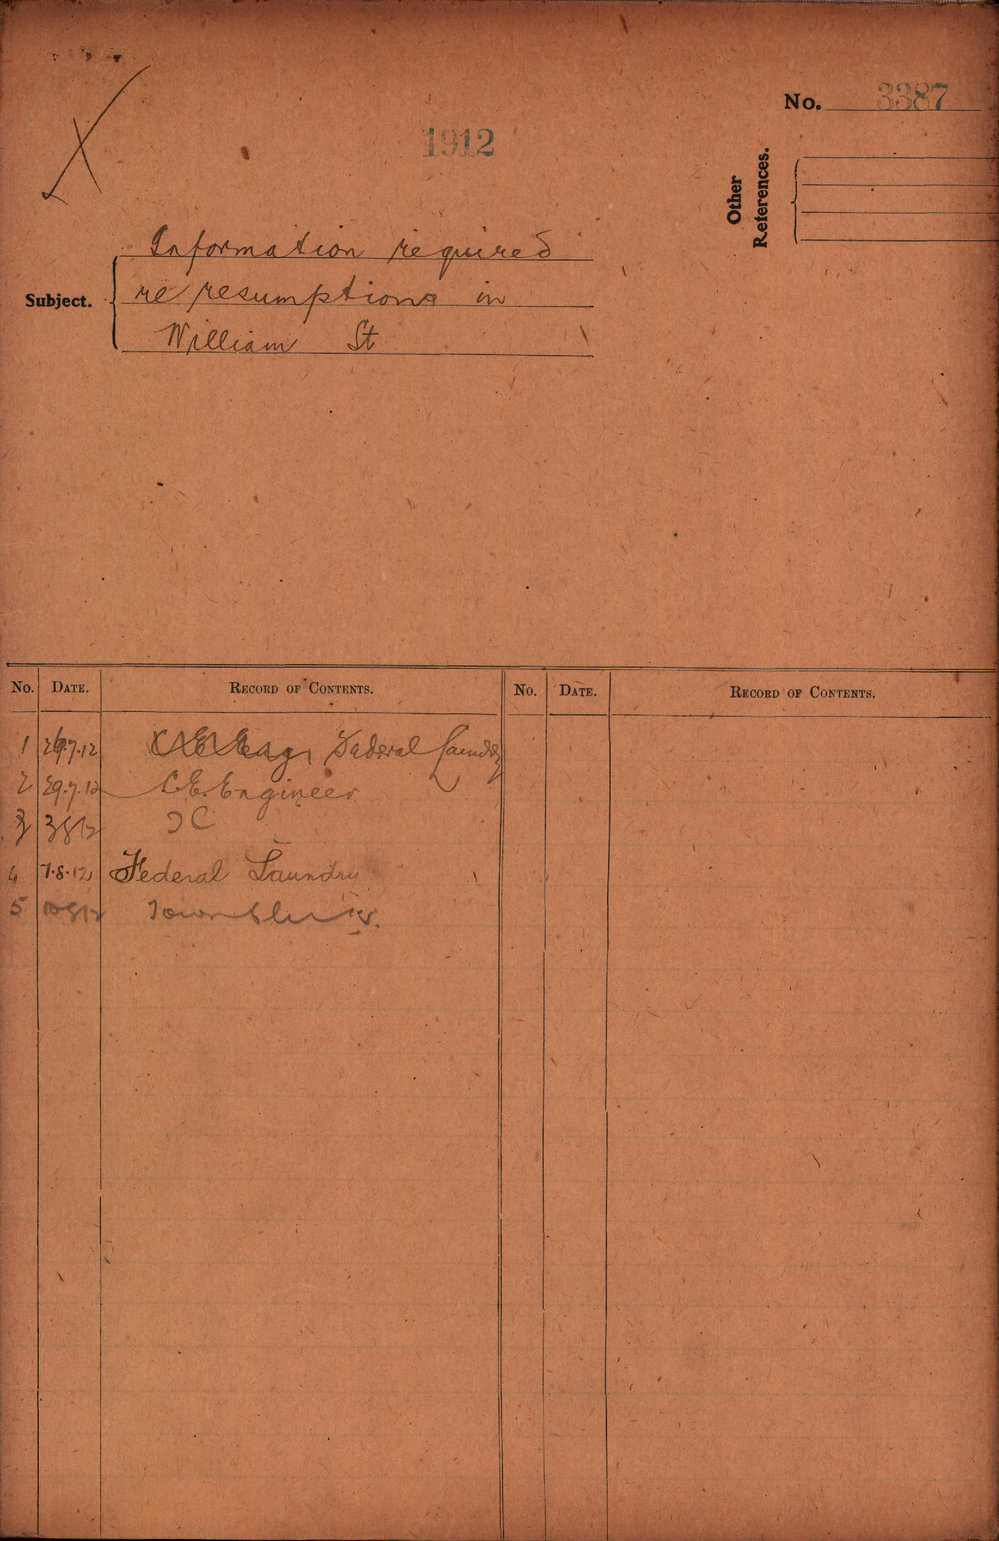 No. 3387
1912
Other
References.
Subject.
Information required
re resumptions in
William St
No. DATE. RECORD OF CONTENTS. No. DATE. RECORD OF CONTENTS.
1 26.7.12 Federal Laundry
2 29.7.12 C.E. Engineer
3 3 8 12
4 7.8.12 Federal Laundry
5 10 8 12 Town Clerk